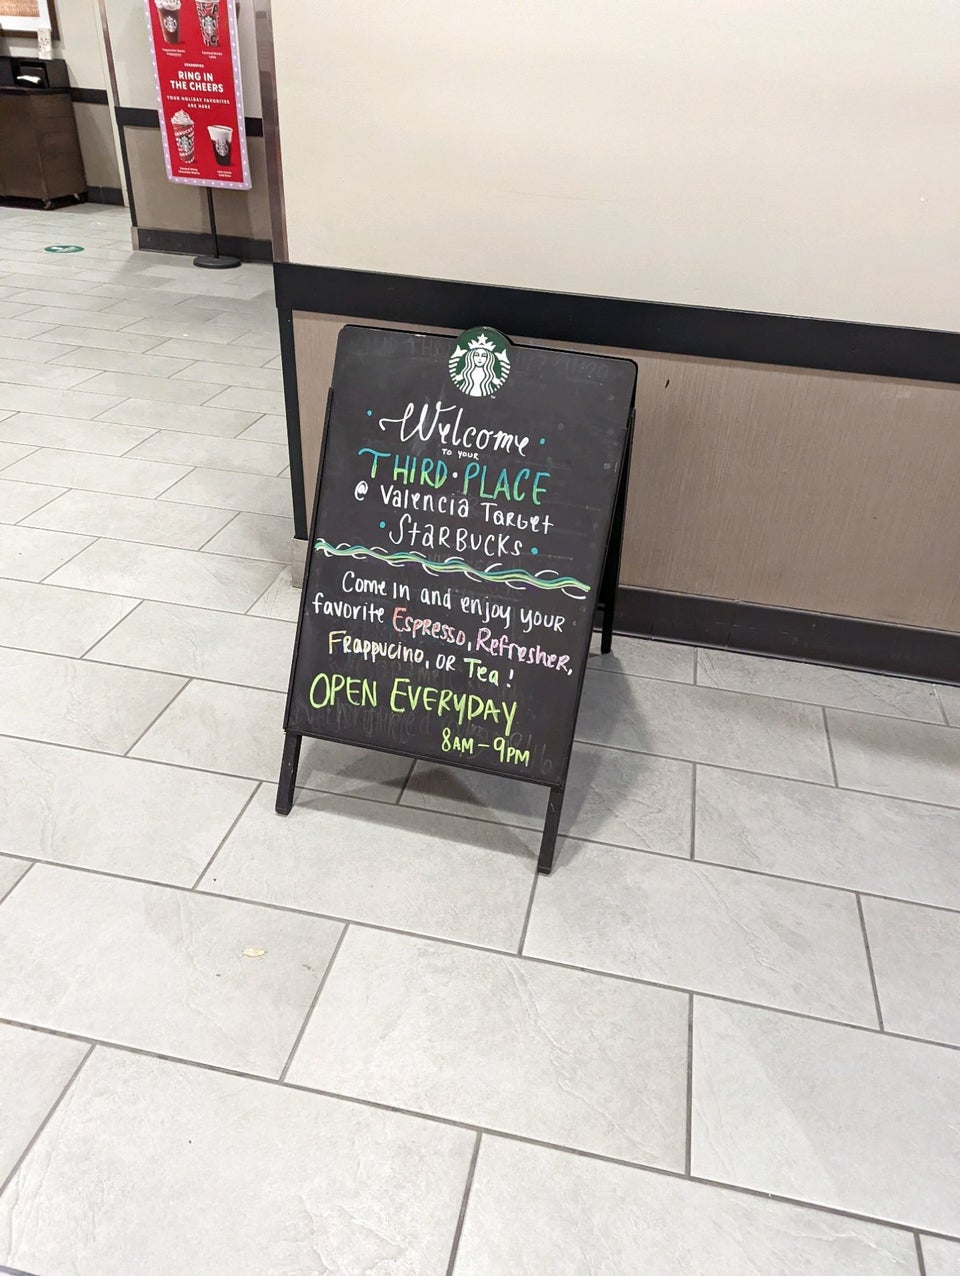 RING IN
THE CHEERS
YOUR HOLIDAY FAVORITES
ARE HERE
Welcome
TO YOUR
THIRD • PLACE
@ Valencia Target
• STARBUCKS •
Come In and enjoy your
favorite Espresso, Refresher,
Frappucino, or Tea!
OPEN EVERYDAY
8AM – 9PM